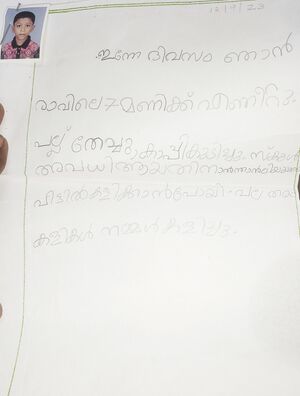 12/9/23
ഇന്നേ ദിവസം ഞാൻ
രാവിലെ 7 മണിക്ക് എണീറ്റു.
പല്ല് തേച്ചു, കാപ്പി കുടിച്ചു. സ്കൂൾ
അവധി ആയതിനാൽ ഞാൻ
വീട്ടിൽ കളിക്കാൻ പോയി. പല തരം
കളികൾ നമ്മൾ കളിച്ചു.